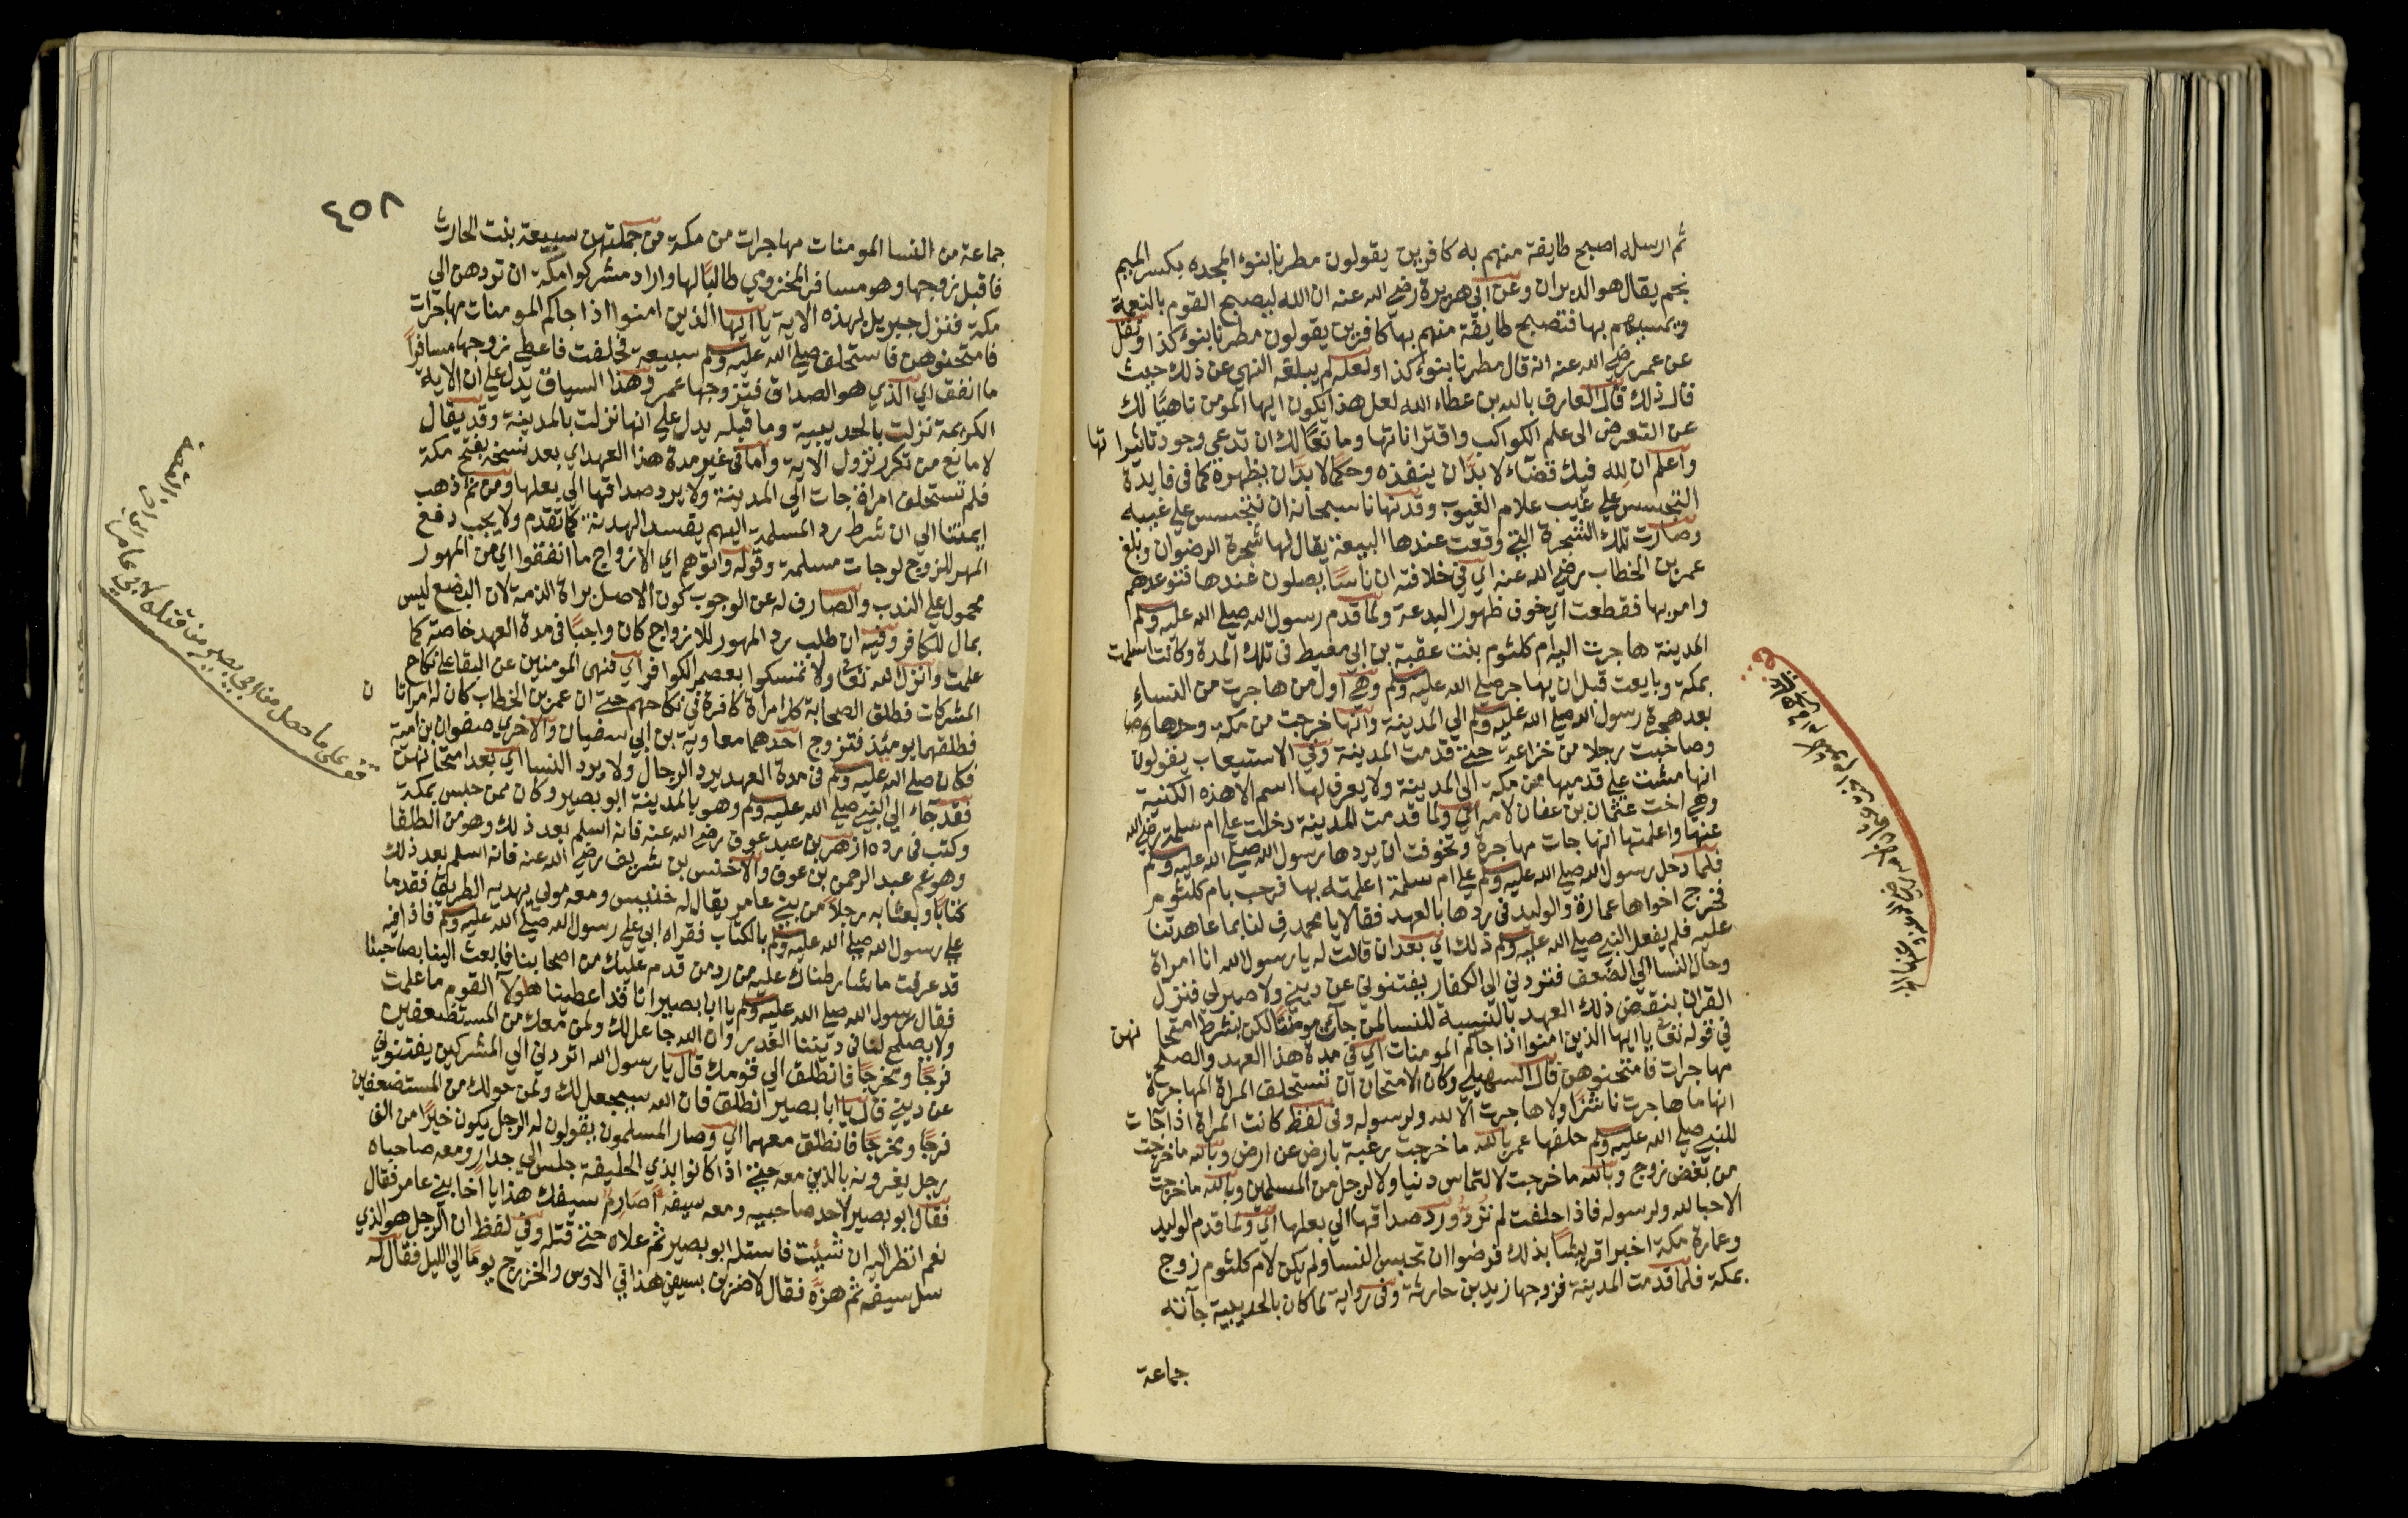 ثم ارسله اصبح طايفة منهم به كافرين يقولون مطرنا بنوء المجده بكسر الميم
نجم يقال هو الدبران وعن ابي هريرة رضي الله عنه ان الله ليصبح القوم بالنعمة
ويمسيهم بها فتصبح طايفة منهم بها كافرين يقولون مطرنا بنوء كذا ونقل
عن عمر رضي الله عنه انه قال مطرنا بنوء كذا ولعله لم يبلغه النهي عن ذلك حيث
قال ذلك قال العارف بالله بن عطاء الله لعل هذا يكون ايها المومن ناهيًا لك
عن التعرض الى علم الكواكب واقتراناتها ومانعًا لك ان تدعي وجود تاثيرا تها
واعلم ان لله فيك قضاء لا بدّ ان ينفذه وحكمًا لا بدّ ان يظهره فما فى فايدة
التجسس علي غيب علام الغيوب وقد نهانا سبحانه ان نتجسس علي غيبه
وصارت تلك الشجرة التي وقعت عندها البيعة يقال لها شجرة الرضوان وبلغ
عمر بن الخطاب رضي الله عنه اي في خلافته ان ناسًا يصلون عندها فتوعدهم
وامر بها فقطعت اي خوف ظهور البدعة ولما قدم رسول الله صلي الله عليه وسلم
المدينة هاجرت اليه ام كلثوم بنت عقبة بن ابي معيط في تلك المدة وكانت اسلمت
بمكة وبايعت قبل ان يهاجر صلي الله عليه وسلم وهي اول من هاجرت من النساء
بعد هجرة رسول الله صلي الله عليه وسلم الي المدينة وانها خرجت من مكة وحدها وصا
وصاحبت رجلا من خزاعة حتى قدمت المدينة وفي الاستيعاب يقولون
انها مشت علي قدميها من مكة الي المدينة ولا يعرف لها اسم الا هذه الكنية
وهي اخت عثمان بن عفان لامه اي ولما قدمت المدينة دخلت علي ام سلمة رضي الله
عنها واعلمتها انها جات مهاجرة وتخوفت ان يردها رسول الله صلي الله عليه وسلم
فلما دخل رسول الله صلي الله عليه وسلم علي ام سلمة اعلمته بها فرحب بام كلثوم
فخرج اخواها عمارة والوليد في ردها بالعهد فقالا يا محمد فِ لنا بما عاهدتنا
عليه فلم يفعل النبي صلي الله عليه وسلم ذلك اي بعد ان قالت له يا رسول الله انا امراة
وحال النسا الي الضعف فتردني الي الكفار يفتنوني عن ديني ولا صبر لي فنزل
القران بنقض ذلك العهد بالنسبة للنسا لمن جآ منهن مومنًا لكن بشرط امتحا نهن
في قوله تعالى يا ايها الذين امنوا اذا جآكم المومنات اي في مدة هذا العهد والصلح
مهاجرات فامتحنوهن قال السهيلي وكان الامتحان ان تستحلف المراة المهاجرة
انها ما هاجرت ناشزًا ولا هاجرت الا لله ولرسوله وفى لفظ كانت المراة اذا جات
للنبي صلي الله عليه وسلم حلفها عمر بالله ما خرجت رغبة بارض عن ارض وبالله ما خرجت
من بغض زوج وبالله ما خرجت لالتماس دنيا ولا لرجل من المسلمين وبالله ما خرجت
الا حبا لله ولرسوله فاذا حلفت لم تُرَدّ وردّ صداقها الي بعلها اي ولما قدم الوليد
وعمارة مكة اخبرا قريشًا بذلك فرضوا ان تحبس النسا ولم يكن لام كلثوم زوج
بمكة فلما قدمت المدينة فزوجها زيد بن حارثة وفى رواية لما كان بالحديبية جآته
جماعة
٤٥٨
جماعة من النسا المومنات مهاجرات من مكة من جملتهن سبيعة بنت الحارث
فاقبل زوجها وهو مسافر المخزومي طالبًا لها واراد مشركوا مكة ان تردهن الي
مكة فنزل جبريل بهذه الاية يا ايها الذين امنوا اذا جاكم المومنات مهاجرات
فامتحنوهن فاستحلف صلي الله عليه وسلم سبيعة فحلفت فاعطي زوجها مسافرًا
ما انفق اي الذي هو الصداق فتزوجها عمر وهذا السياق يدل علي ان الاية
الكريمة نزلت بالحديبية وما قبله يدل علي انها نزلت بالمدينة وقد يقال
لا مانع من تكرر نزول الاية واما في غير مدة هذا العهد اي بعد نسخه بفتح مكة
فلم تستحلف امراة جات الي المدينة ولا يرد صداقها الي بعلها ومن ثم ذهب
ايمتنا الي ان شرط رد المسلمة اليهم يفسد الهدنة كما تقدم ولا يجب دفع
المهر للزوج لو جات مسلمة وقوله واتوهم اي الازواج ما انفقوا اي من المهور
محمول علي الندب والصارف له عن الوجوب كون الاصل براة الذمة لان البضع ليس
بمال للكافر وفيه ان طلب رد المهور للازواج كان واجبًا في مدة العهد خاصة كما
علمت وانزل الله تعالى ولا تمسكوا بعصم الكوافر اي فنهى المومنين عن البقا علي نكاح
المشركات فطلق الصحابة كل امراة كافرة في نكاحهم حتى ان عمر بن الخطاب كان له امراتا ن
فطلقهما يومئذ فتزوج احدهما معاوية بن ابي سفيان والاخرى صفوان بن امية
فكان صلي الله عليه وسلم في مدة العهد يرد الرجال ولا يرد النسا اي بعد امتحانهن
فقد جآء الي النبي صلي الله عليه وسلم وهو بالمدينة ابو بصير وكان ممن حبس بمكة
وكتب في رده ازهر بن عبد عوف رضي الله عنه فانه اسلم بعد ذلك وهو من الطلقا
وهو عم عبد الرحمن بن عوف والاخنس بن شريف رضي الله عنه فانه اسلم بعد ذلك
كتابًا وبعثا به رجلًا من بني عامر يقال له خنيس ومعه مولي يهديه الطريق فقدما
علي رسول الله صلي الله عليه وسلم بالكتاب فقراه ابي علي رسول الله صلي الله عليه وسلم فاذا فيه
قد عرفت ما شارطناك عليه من رد من قدم عليك من اصحابنا فابعث الينا بصاحبنا
فقال رسول الله صلي الله عليه وسلم يا ابا بصير انا قد اعطينا هولآ القوم ما علمت
ولا يصلح لنا في ديننا الغدر وان الله جاعل لك ولمن معك من المستضعفين
فرجًا ومخرجًا فانطلق الي قومك قال يا رسول الله اتردني الي المشركين يفتنوني
عن ديني قال يا ابا بصير انطلق فان الله سيجعل لك ولمن حولك من المستضعفين
فرجًا ومخرجًا فانطلق معهما اي وصار المسلمون يقولون له الرجل يكون خيرًا من الف
رجل يغرونه بالذين معه حتى اذا كانوا بذي الحليفة جلس الي جدار ومعه صاحباه
فقال ابو بصير لاحد صاحبيه ومعه سيفه اَصَارِمٌ سيفك هذا يا اخا بني عامر فقال
نعم انظر اليه ان شئيت فاستله ابو بصير ثم علاه حتى قتله وفي لفظ ان الرجل هو الذي
سل سيفه ثم هزّه فقال لاضربن بسيفي هذا في الاوس والخزرج يومًا الي الليل فقال له
قف على ما حصل من ابي بصير من قتله